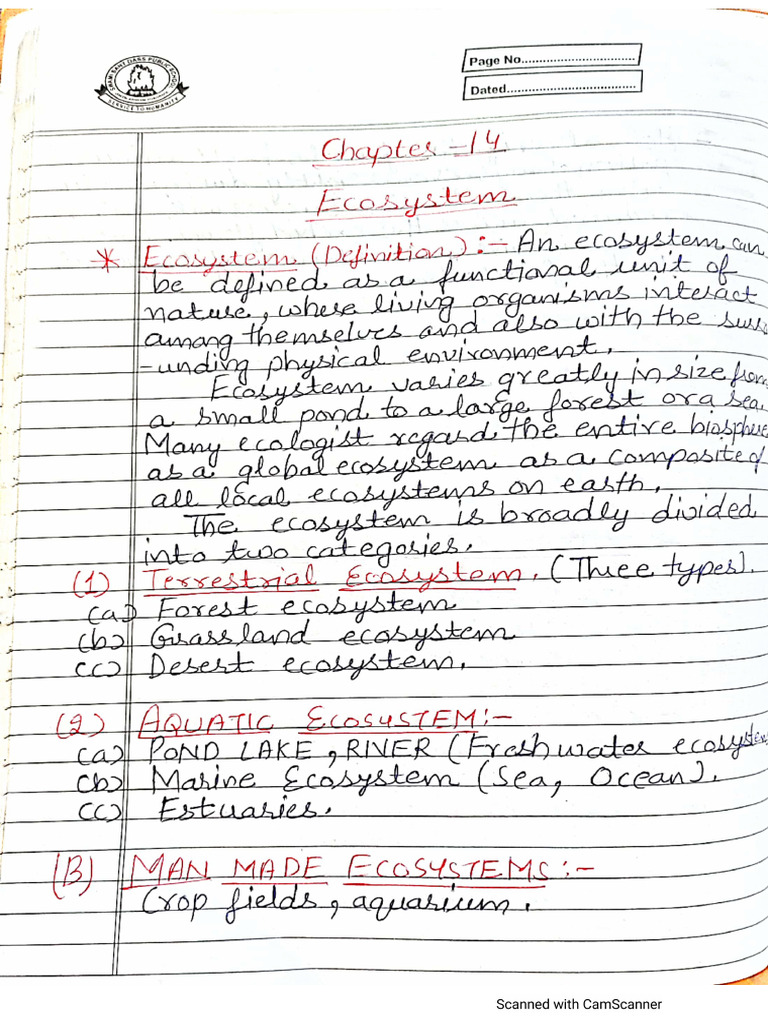 SWAMI SANT DASS PUBLIC SCHOOL
SERVICE TO HUMANITY
Page No.
Dated.
Chapter - 14
Ecosystem
* Ecosystem (Definition) :- An ecosystem can
be defined as a functional unit of
nature, where living organisms interact
among themselves and also with the surro
-unding physical environment.
Ecosystem varies greatly in size from
a small pond to a large forest or a sea.
Many ecologist regard the entire biosphere
as a global ecosystem as a composite of
all local ecosystems on earth.
The ecosystem is broadly divided
into two categories.
(1) Terrestrial Ecosystem. (Three types).
(a) Forest ecosystem
(b) Grassland ecosystem
(c) Desert ecosystem.
(2) AQUATIC ECOSYSTEM :-
(a) POND LAKE, RIVER (Fresh water ecosystem
(b) Marine Ecosystem (Sea, Ocean).
(c) Estuaries.
(B) MAN MADE ECOSYSTEMS :-
Crop fields, aquarium.
Scanned with CamScanner